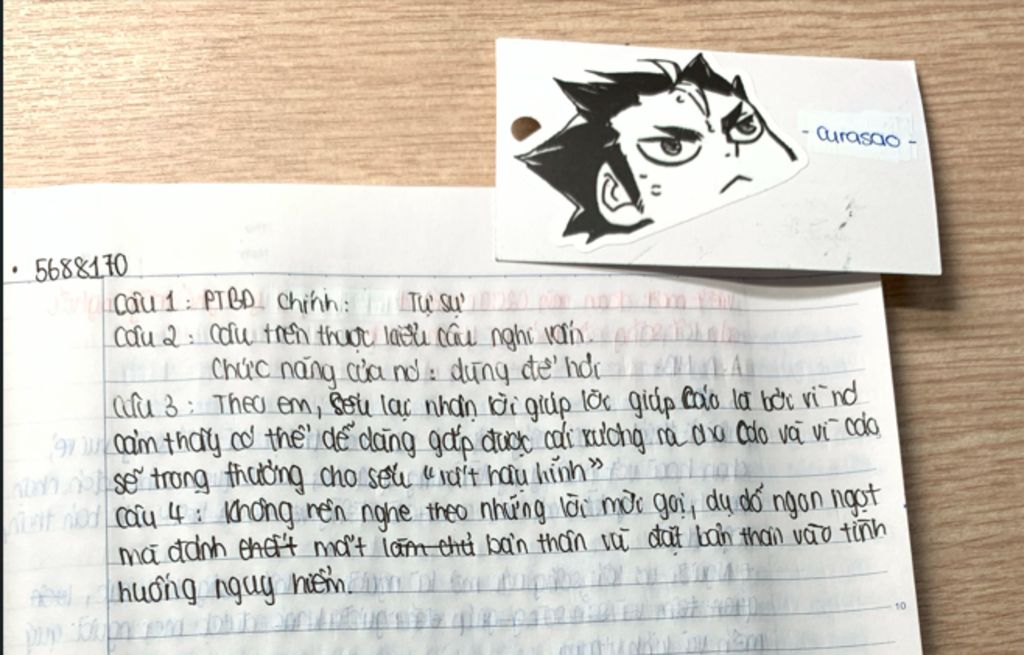 - Curasao -
• 5688170
Câu 1 : PTBĐ chính : Tự sự
Câu 2 : Câu trên thuộc kiểu câu nghi vấn.
Chức năng của nó : dùng để hỏi
Câu 3 : Theo em, Sếu lại nhận lời giúp Cáo là bởi vì nó
cảm thấy có thể dễ dàng gắp được cái xương ra cho Cáo và vì cáo
sẽ trọng thưởng cho sếu “rất hậu hĩnh”
Câu 4 : Không nên nghe theo những lời mời gọi, dụ dỗ ngon ngọt
mà đánh mất bản thân và đặt bản thân vào tình
huống nguy hiểm.
10